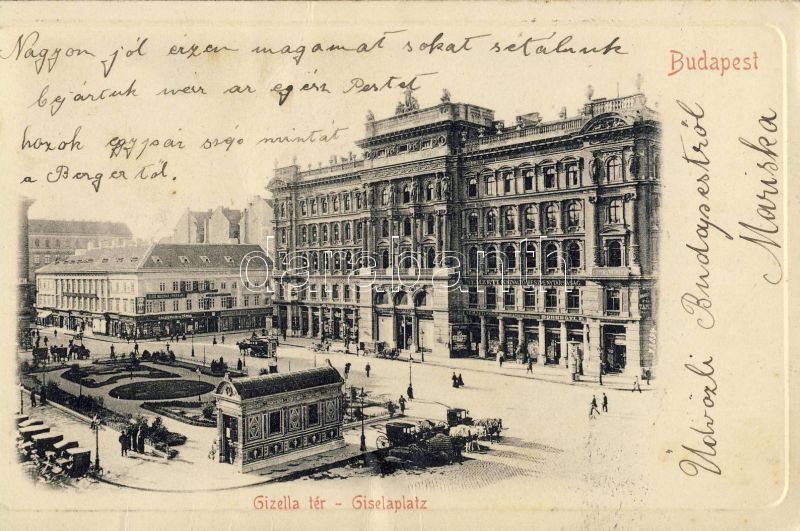 Nagyon jól érzen magamat sokat sétálunk
bejártuk már az egész Pestet
hozok egypár szijo mintát
a Bergertől.
Budapest
Üdvözli Budapestről
Mariska
darabanth
Gizella tér - Giselaplatz